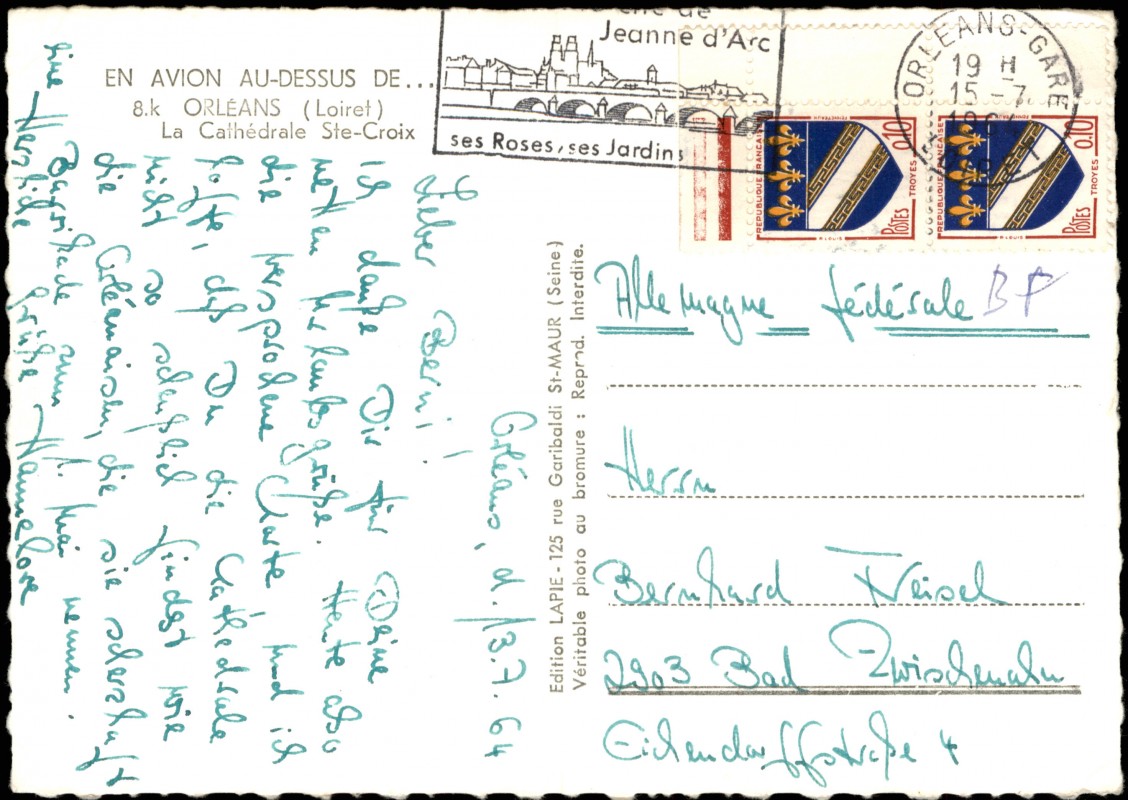 EN AVION AU-DESSUS DE...
8.k ORLÉANS (Loiret)
La Cathédrale Ste-Croix
Jeanne d'Arc
ses Roses, ses Jardins
ORLEANS-GARE
19 H
15-7
RÉPUBLIQUE FRANÇAISE
0,10
POSTES
TROYES
RÉPUBLIQUE FRANÇAISE
0,10
POSTES
TROYES
Orléans, d. 13.7.64
Lieber Berni!
Ich danke Dir für Deine
netten Urlaubsgrüße. Heute also
die versprochene Karte und ich
hoffe, daß Du die Cathedrale
nicht so scheußlich findest wie
die Orléanaisen, die sie scherzhaft
nennen.
Herzliche Grüße Hannelore
Edition LAPIE - 125 rue Garibaldi St-MAUR (Seine)
Véritable photo au bromure : Reprod. Interdite.
Allemagne fédérale
Herrn
Bernhard
2903 Bad Zwischenahn
Eichendorffstraße 4